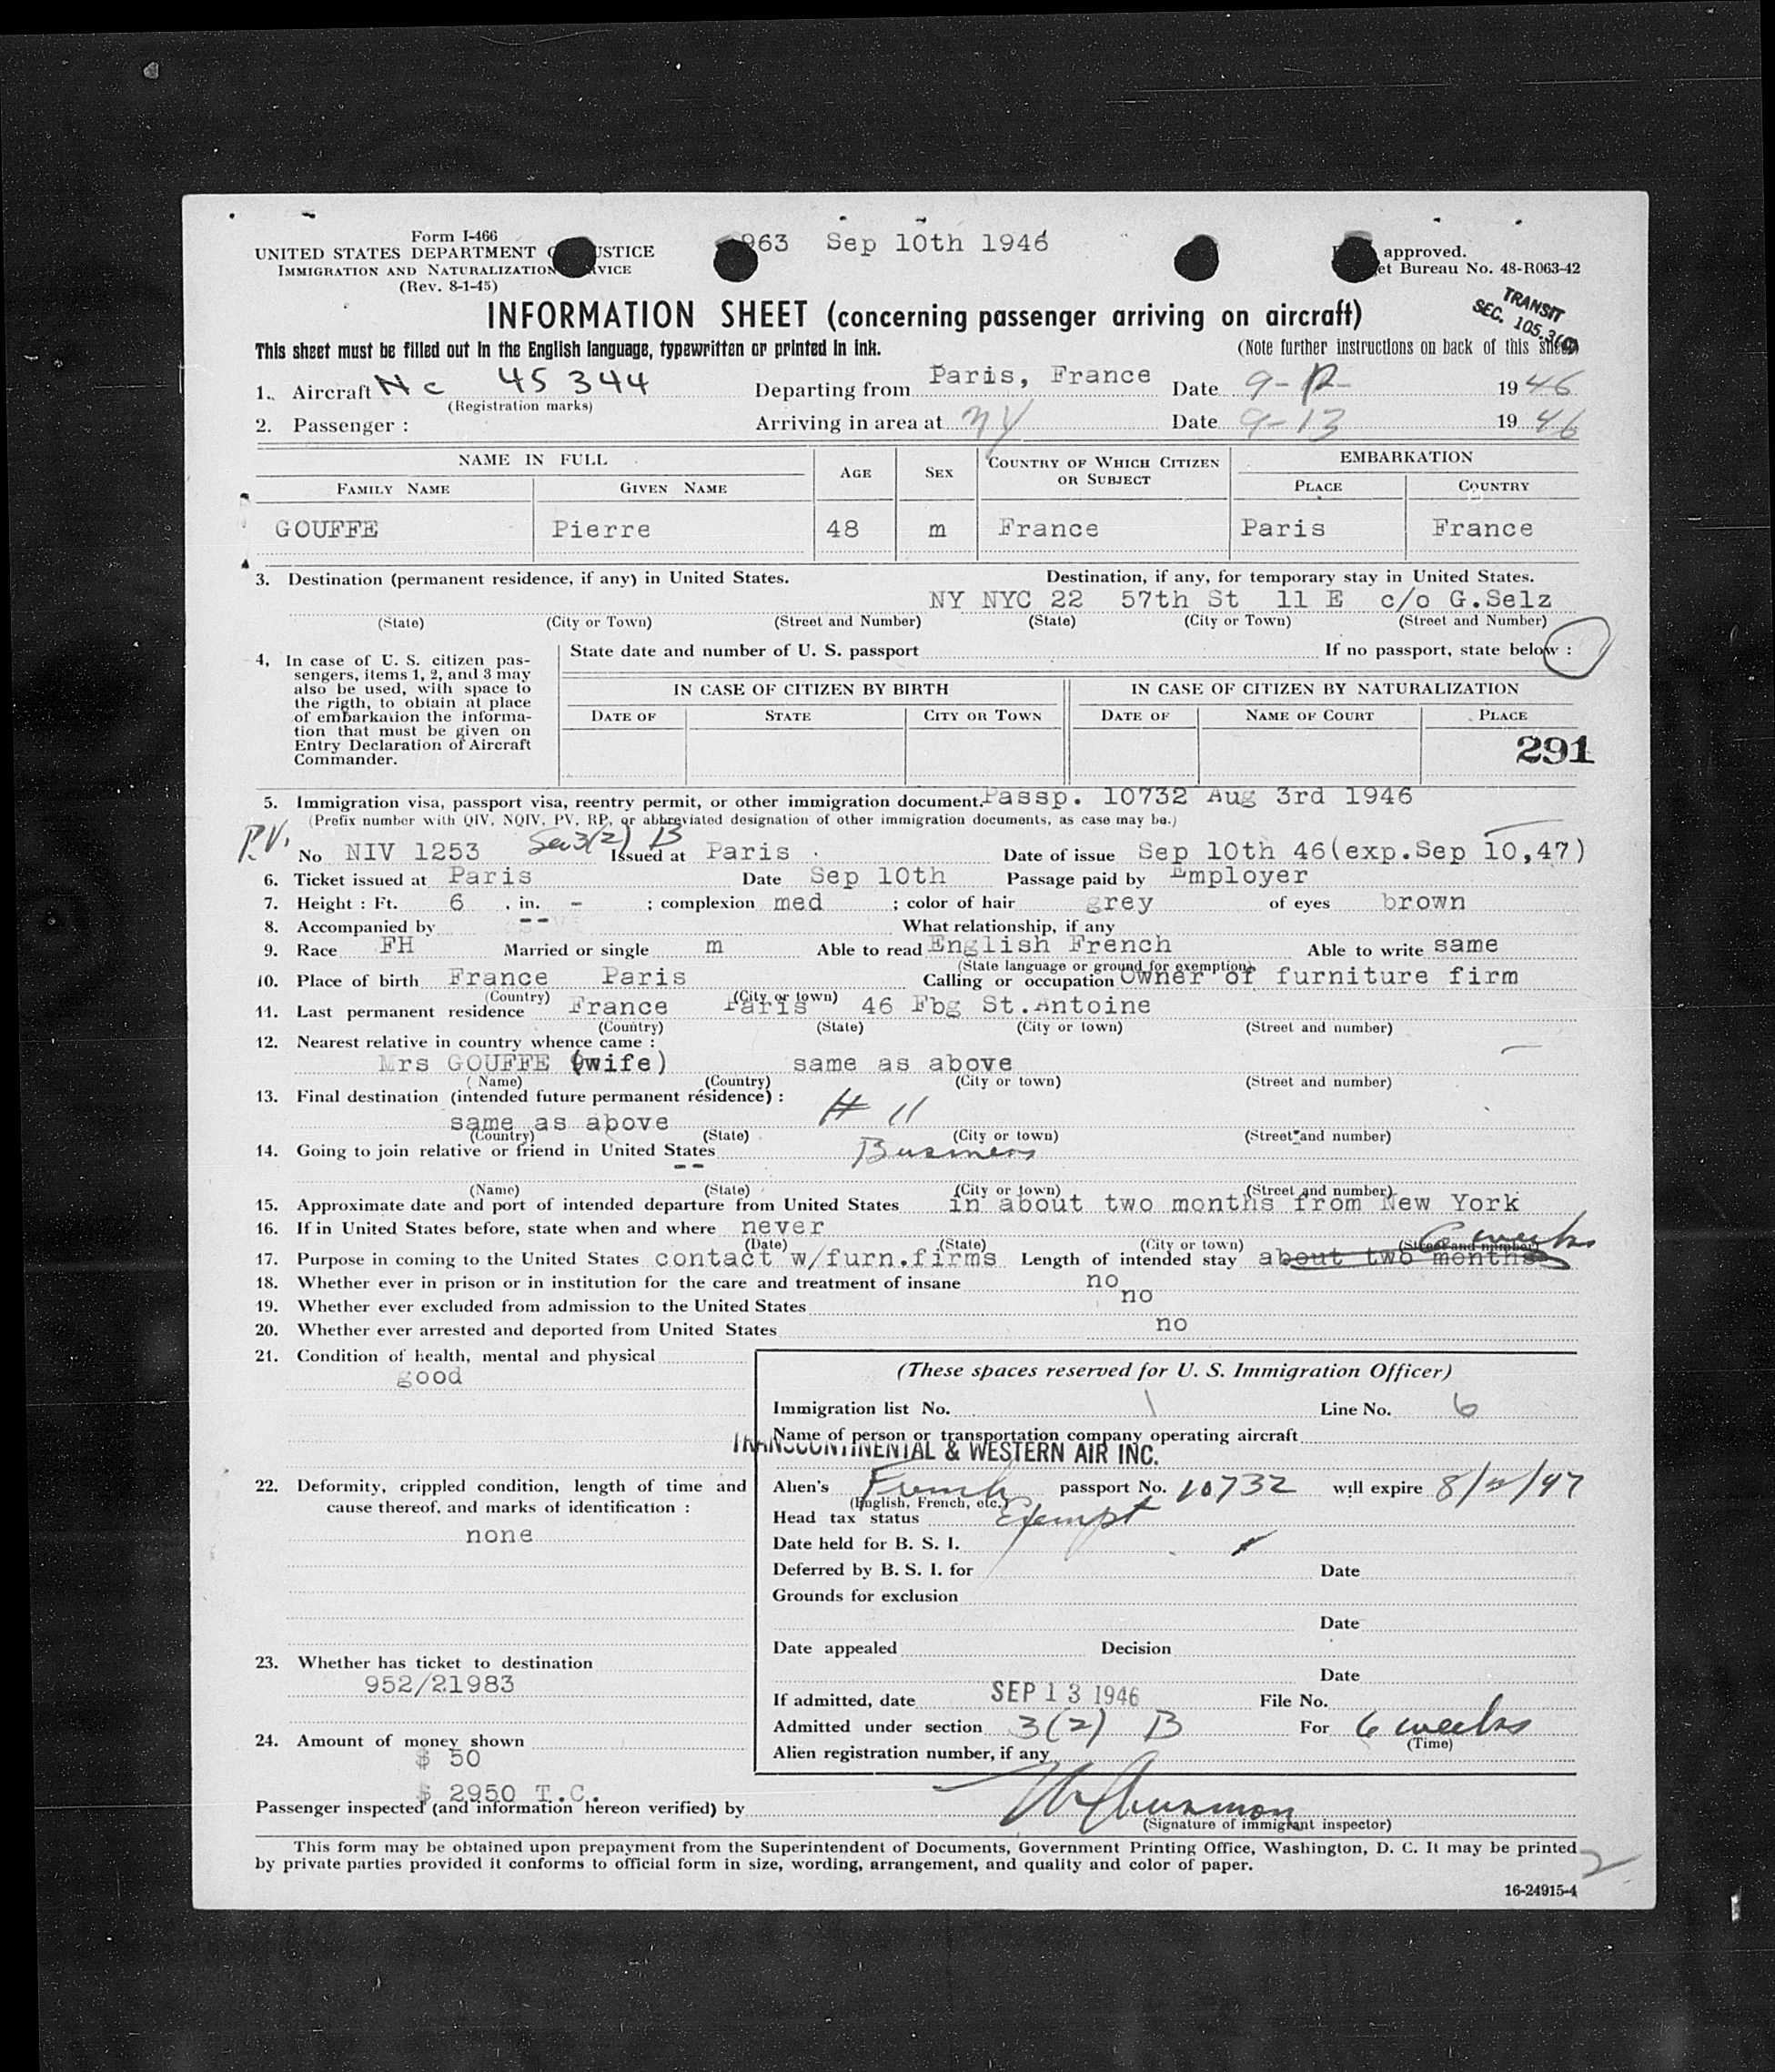 Form I-466
UNITED STATES DEPARTMENT USTICE
IMMIGRATION AND NATURALIZATION VICE
(Rev. 8-1-45)
963 Sep 10th 1946
approved.
et Bureau No. 48-R063-42
INFORMATION SHEET (concerning passenger arriving on aircraft)
TRANSIT
SEC. 105.3(
This sheet must be filled out in the English language, typewritten or printed in ink.
(Note further instructions on back of this sheet)
1. Aircraft Nc 45344 Departing from Paris, France Date 9-12- 1946
(Registration marks)
2. Passenger : Arriving in area at NY Date 9-13 1946
NAME IN FULL AGE SEX COUNTRY OF WHICH CITIZEN OR SUBJECT EMBARKATION
FAMILY NAME GIVEN NAME PLACE COUNTRY
GOUFFE Pierre 48 m France Paris France
3. Destination (permanent residence, if any) in United States. Destination, if any, for temporary stay in United States.
NY NYC 22 57th St 11 E c/o G.Selz
(State) (City or Town) (Street and Number) (State) (City or Town) (Street and Number)
4. In case of U. S. citizen pas-
sengers, items 1, 2, and 3 may
also be used, with space to
the rigth, to obtain at place
of embarkation the informa-
tion that must be given on
Entry Declaration of Aircraft
Commander.
State date and number of U. S. passport If no passport, state below :
IN CASE OF CITIZEN BY BIRTH IN CASE OF CITIZEN BY NATURALIZATION
DATE OF STATE CITY OR TOWN DATE OF NAME OF COURT PLACE
291
5. Immigration visa, passport visa, reentry permit, or other immigration document. Passp. 10732 Aug 3rd 1946
(Prefix number with QIV, NQIV, PV, RP, or abbreviated designation of other immigration documents, as case may be.)
P.V. No NIV 1253 Sec 3(2) B Issued at Paris Date of issue Sep 10th 46(exp.Sep 10,47)
6. Ticket issued at Paris Date Sep 10th Passage paid by Employer
7. Height : Ft. 6 . in. - ; complexion med ; color of hair grey of eyes brown
8. Accompanied by -- What relationship, if any
9. Race FH Married or single m Able to read English French Able to write same
(State language or ground for exemption)
10. Place of birth France Paris Calling or occupation Owner of furniture firm
(Country) (City or town)
11. Last permanent residence France Paris 46 Fbg St.Antoine
(Country) (State) (City or town) (Street and number)
12. Nearest relative in country whence came :
Mrs GOUFFE (wife) same as above
(Name) (Country) (City or town) (Street and number)
13. Final destination (intended future permanent résidence) :
same as above # 11
(Country) (State) (City or town) (Street and number)
14. Going to join relative or friend in United States Business
--
(Name) (State) (City or town) (Street and number)
15. Approximate date and port of intended departure from United States in about two months from New York
16. If in United States before, state when and where never
(Date) (State) (City or town) (Street and number) 6 weeks
17. Purpose in coming to the United States contact w/furn.firms Length of intended stay about two months
18. Whether ever in prison or in institution for the care and treatment of insane no
19. Whether ever excluded from admission to the United States no
20. Whether ever arrested and deported from United States no
21. Condition of health, mental and physical
good
22. Deformity, crippled condition, length of time and
cause thereof, and marks of identification :
none
23. Whether has ticket to destination
952/21983
24. Amount of money shown
$ 50
$ 2950 T.C.
(These spaces reserved for U. S. Immigration Officer)
Immigration list No. 1 Line No. 6
Name of person or transportation company operating aircraft
TRANSCONTINENTAL & WESTERN AIR INC.
Alien's French passport No. 10732 will expire
(English, French, etc.)
Head tax status Exempt
Date held for B. S. I.
Deferred by B. S. I. for Date
Grounds for exclusion
Date
Date appealed Decision
Date
If admitted, date SEP 13 1946 File No.
Admitted under section 3(2) B For 6 weeks
(Time)
Alien registration number, if any
Passenger inspected (and information hereon verified) by
(Signature of immigrant inspector)
This form may be obtained upon prepayment from the Superintendent of Documents, Government Printing Office, Washington, D. C. It may be printed
by private parties provided it conforms to official form in size, wording, arrangement, and quality and color of paper.
2
16-24915-4